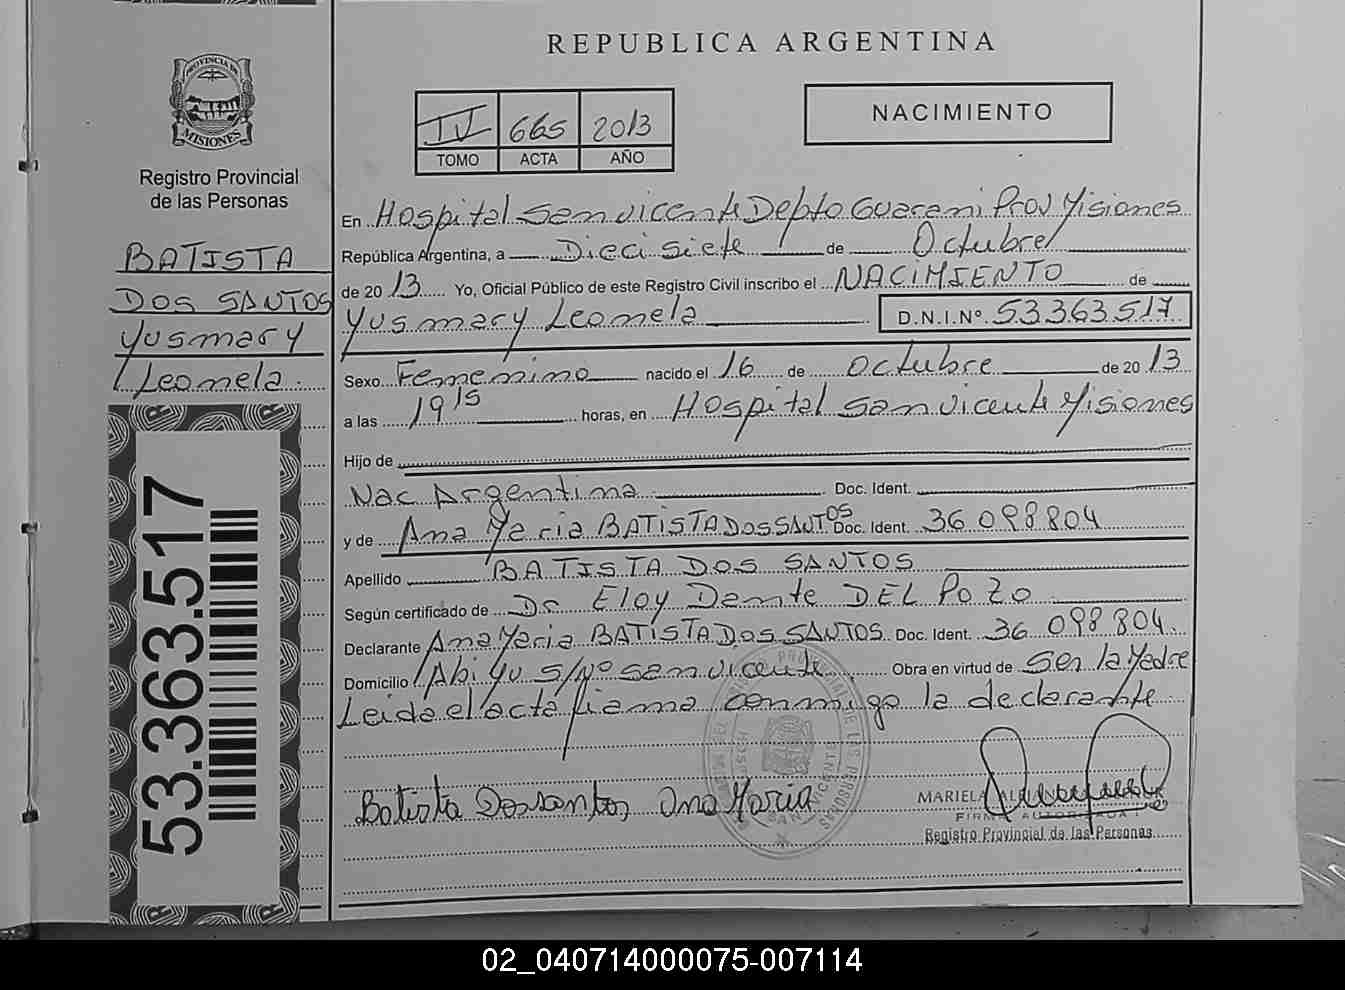 REPUBLICA ARGENTINA
PROVINCIA DE
MISIONES
Registro Provincial
de las Personas
BATISTA
DOS SANTOS
Yusmary
Leonela
53.363.517
IV 665 2013
TOMO ACTA AÑO
NACIMIENTO
En Hospital San Vicente Depto Guarani Prov Misiones
República Argentina, a Diecisiete de Octubre
de 2013 Yo, Oficial Público de este Registro Civil inscribo el NACIMIENTO de
Yusmary Leonela D.N.I.Nº 53363517
Sexo Femenino nacido el 16 de Octubre de 2013
a las 19 15 horas, en Hospital San Vicente Misiones
Hijo de
Nac Argentina Doc. Ident.
y de Ana Maria BATISTA DOS SANTOS Doc. Ident. 36 098 804
Apellido BATISTA DOS SANTOS
Según certificado de Dr Eloy Dante DEL POZO
Declarante Ana Maria BATISTA DOS SANTOS Doc. Ident. 36 098 804
Domicilio S/Nº San Vicente Obra en virtud de Ser la Madre
Leida el acta firma conmigo la declarante
Batista Dos santos Ana Maria
MARIELA
FIRMA AUTORIZADA
Registro Provincial de las Personas
02_040714000075-007114